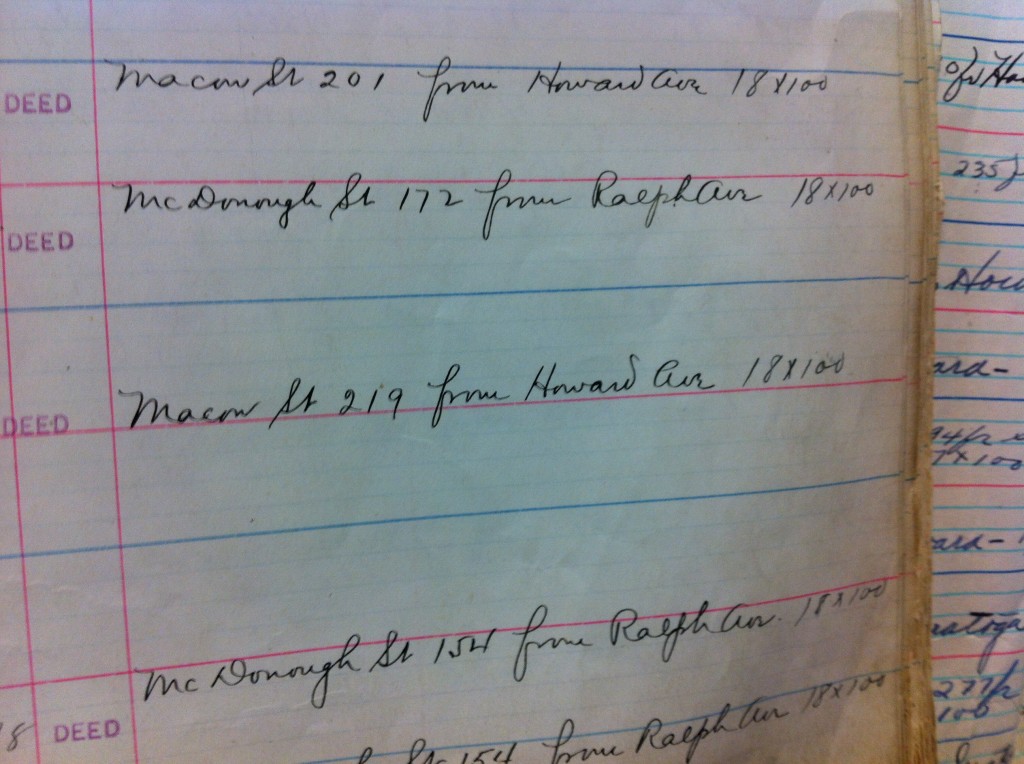 DEED Macon St 201 from Howard Ave 18x100
DEED McDonough St 172 from Ralph Ave 18x100
DEED Macon St 219 from Howard Ave 18x100
McDonough St 154 from Ralph Ave 18x100
8 DEED
St 154 from Ralph Ave 18x100
235
ard-
7x100
ard-
atoga
277
100